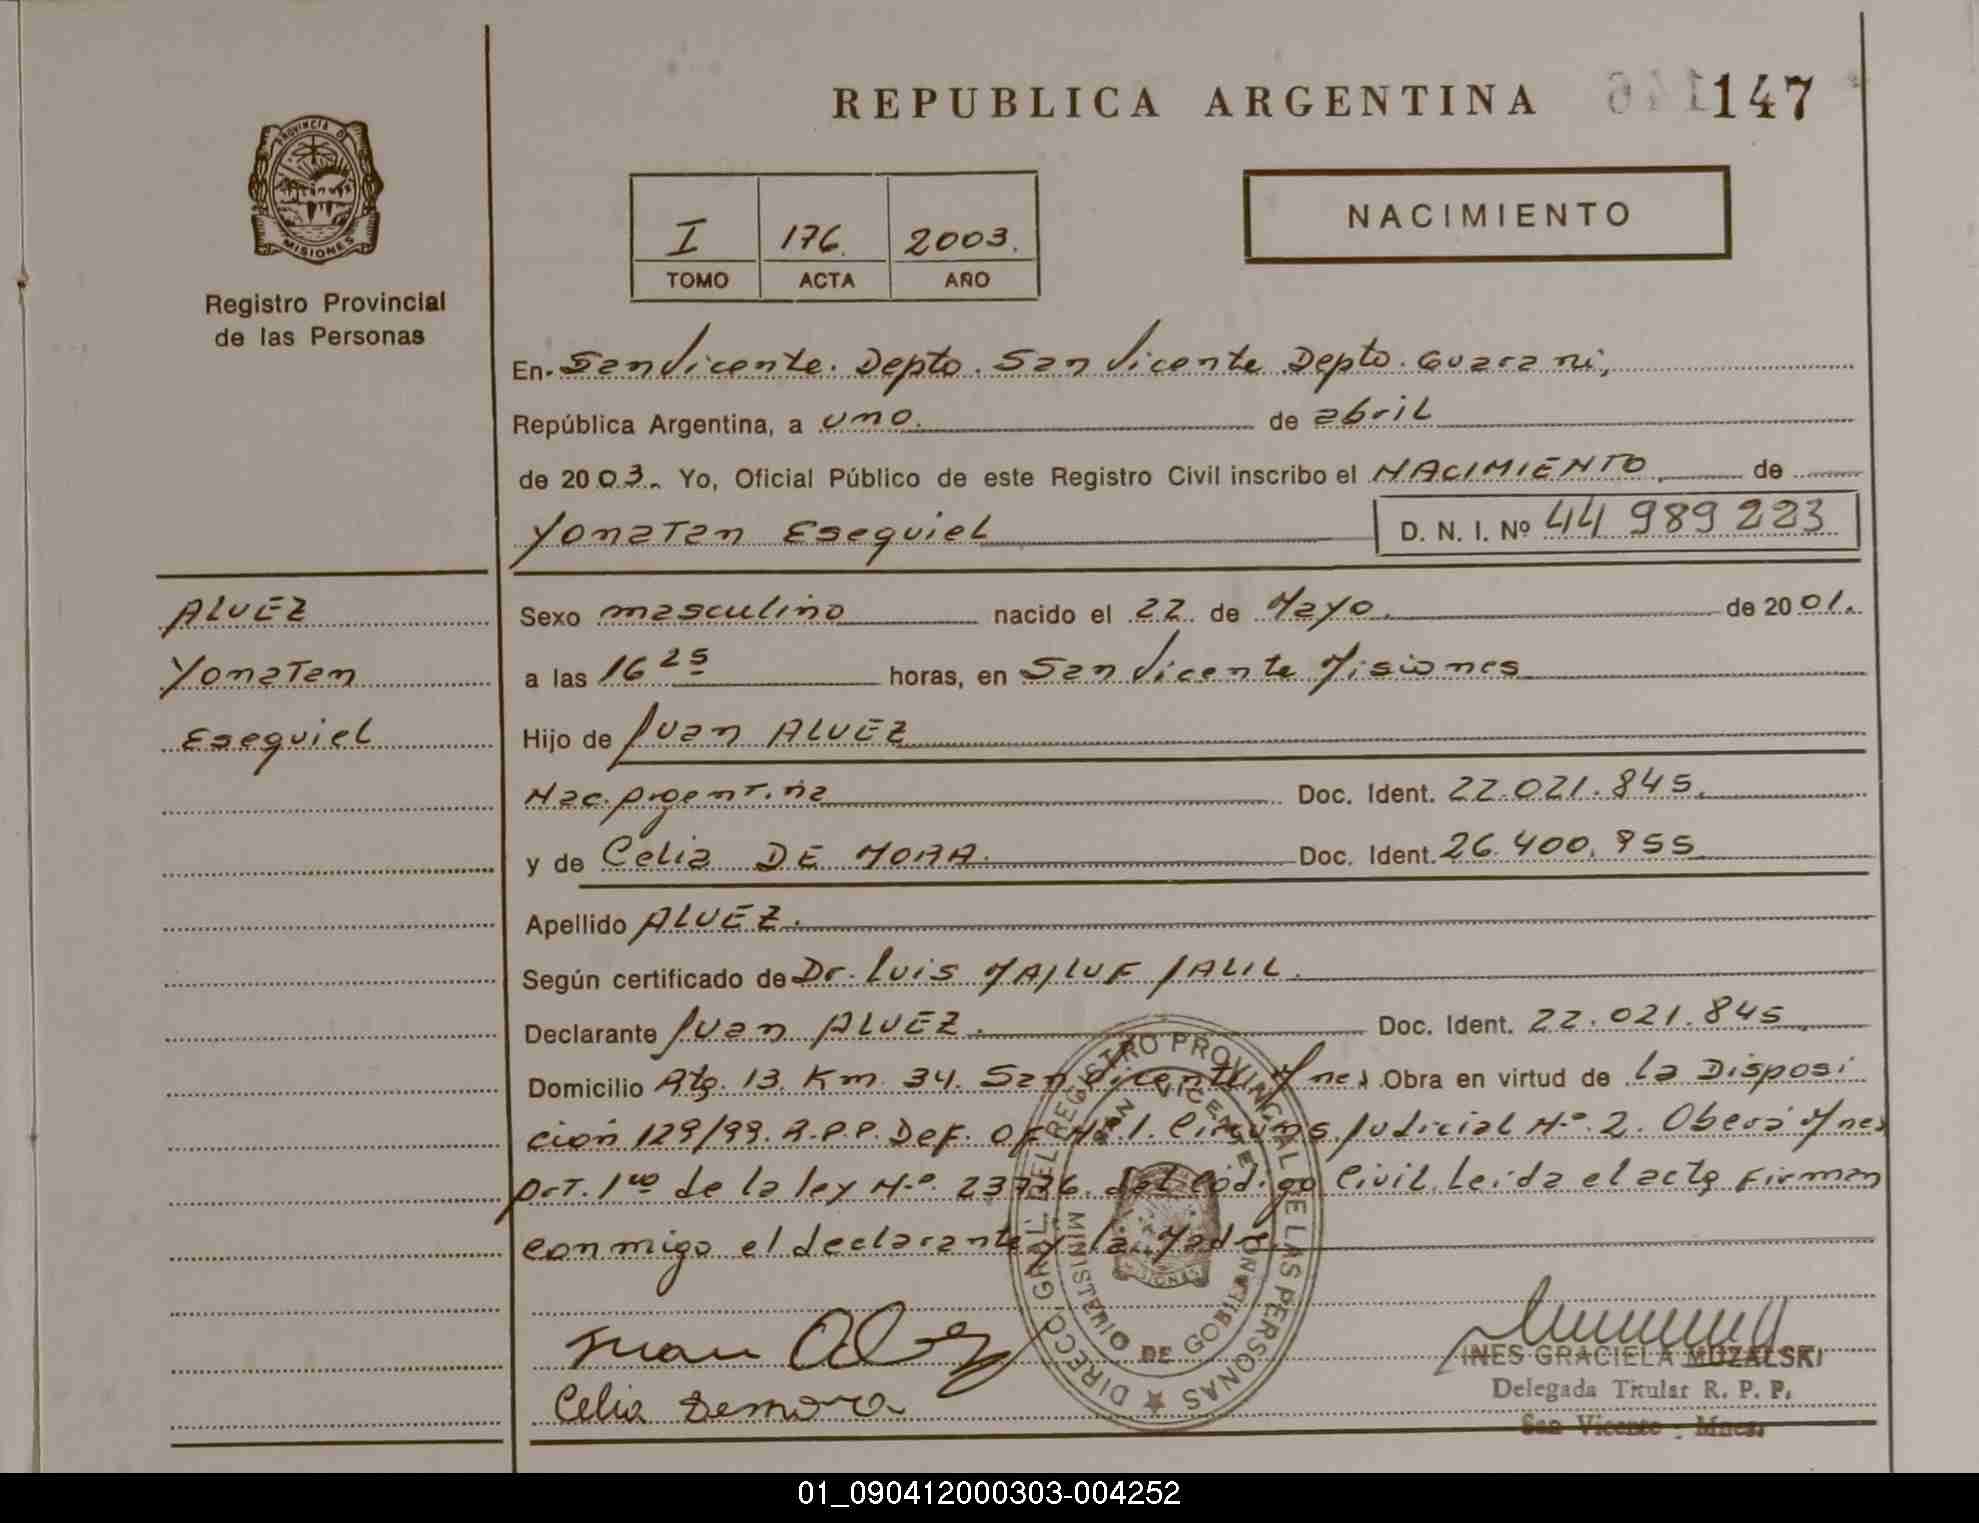 REPUBLICA ARGENTINA
147
PROVINCIA DE
MISIONES
Registro Provincial
de las Personas
I 176. 2003.
TOMO ACTA AÑO
NACIMIENTO
En San Vicente. Depto. San Vicente Depto. Guarani,
República Argentina, a uno. de abril
de 2003. Yo, Oficial Público de este Registro Civil inscribo el NACIMIENTO de
Yonatan Esequiel
D. N. I. Nº 44 989 223
ALVEZ
Yonatan
Esequiel
Sexo masculino nacido el 22 de Mayo. de 2001.
a las 16 25 horas, en San Vicente Misiones
Hijo de Juan ALVEZ
Nac. Argentina Doc. Ident. 22.021.845.
y de Celia DE MORA. Doc. Ident. 26.400.955
Apellido ALVEZ.
Según certificado de Dr. Luis JALIL.
Declarante Juan ALVEZ. Doc. Ident. 22.021.845
Domicilio Rta. 13. Km. 34. San Vicente Mnes. Obra en virtud de la Disposi
ción 129/99. R.P.P. Def. Of. Nº. 1. Circuns. Judicial Nº. 2. Oberá Mnes
Art. 1ro de la ley Nº. 23776. del Código Civil. Leida el acta Firman
conmigo el declarante y la Madre
Juan Alvez
Celia Demora
DIRECC. GRAL. DEL REGISTRO PROVINCIAL DE LAS PERSONAS
SAN VICENTE
MINISTERIO DE GOBIERNO
INES GRACIELA MUZALSKI
Delegada Titular R. P. P.
San Vicente - Mnes.
01_090412000303-004252